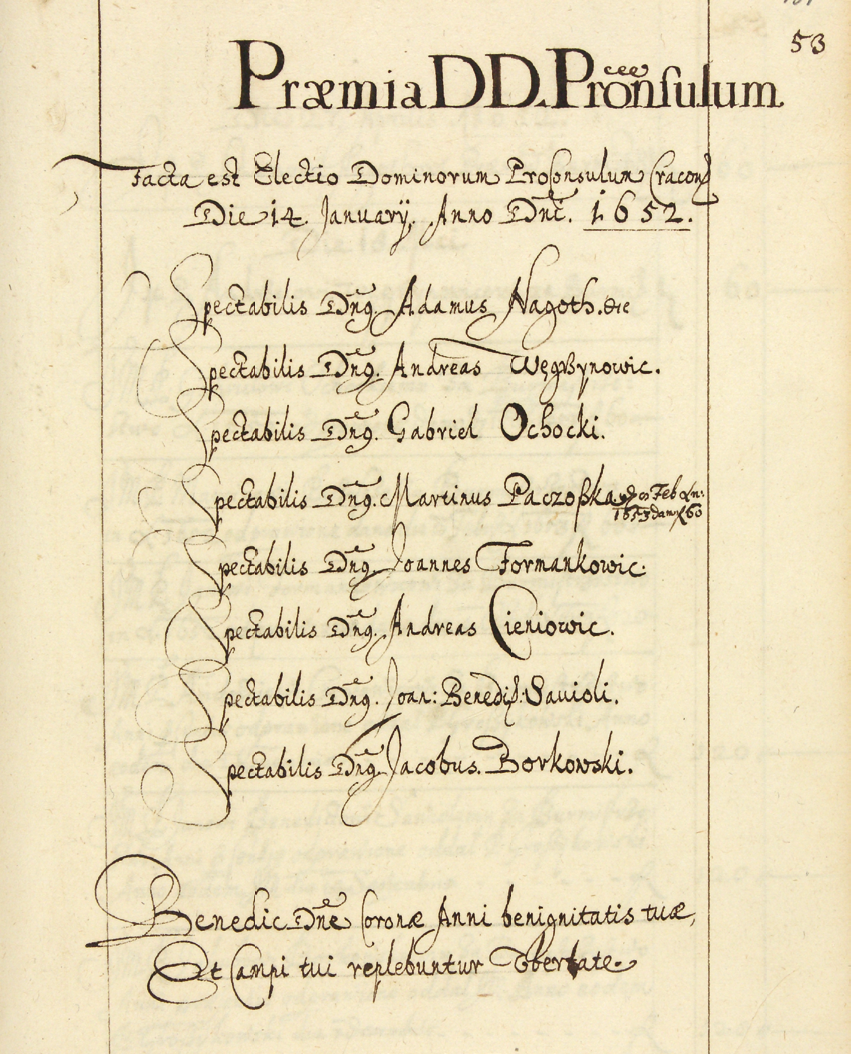 53
Præmia DD. Pröonsulum
Facta est Electio Dominorum Proconsulum Cracon
Die 14. Januarÿ. Anno Dni. 1652.
Spectabilis Dn9. Adamus Nagoth.
Spectabilis Dn9. Andreas Węgßynowic.
Spectabilis Dn9. Gabriel Ochocki.
Spectabilis Dn9. Martinus Paczoßka Feb An:
1653 60
Spectabilis Dn9. Joannes Formankowic.
Spectabilis Dn9. Andreas Cieniowic.
Spectabilis Dn9. Joan: Benedi: Savioli.
Spectabilis Dn9. Jacobus. Borkowski.
Benedic Dne Coronæ Anni benignitatis tuæ,
Et Campi tui replebuntur Vbertate.